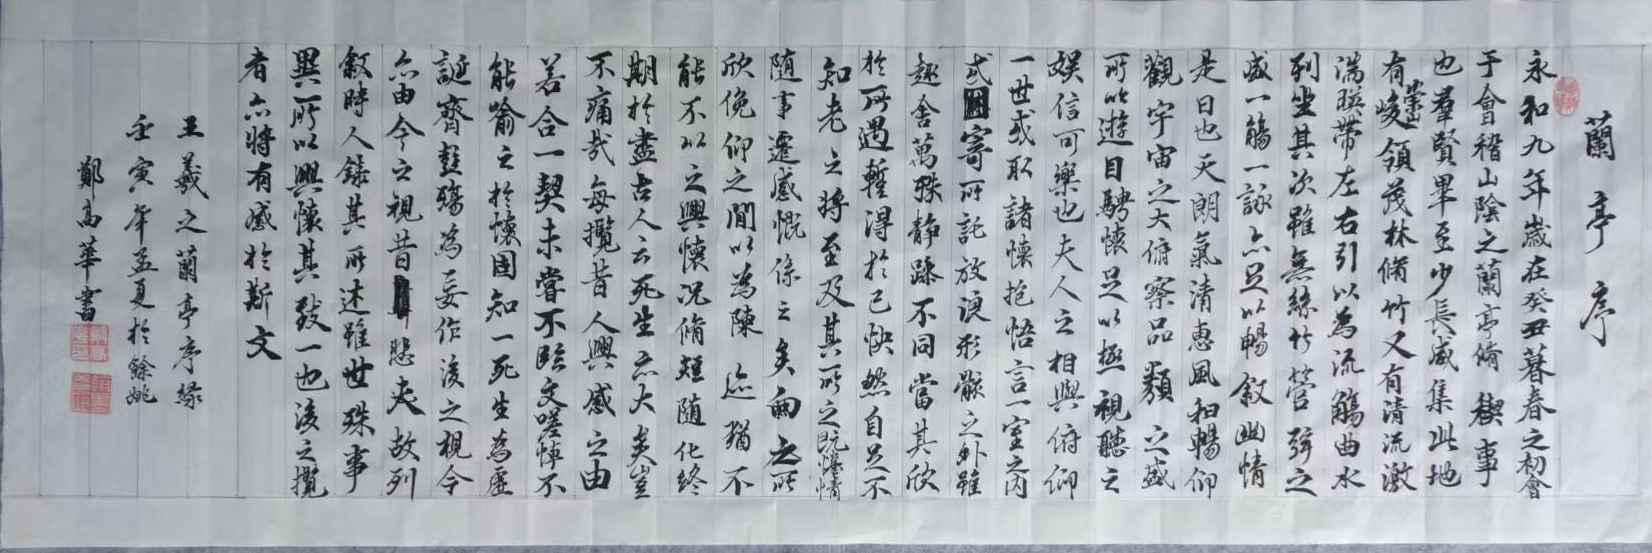 蘭亭序
永和九年歲在癸丑暮春之初會
于會稽山陰之蘭亭脩禊事
也羣賢畢至少長咸集此地
有崇山峻領茂林脩竹又有清流激
湍暎帶左右引以為流觴曲水
列坐其次雖無絲竹管弦之
盛一觴一詠亦足以暢敘幽情
是日也天朗氣清惠風和暢仰
觀宇宙之大俯察品類之盛
所以遊目騁懷足以極視聽之
娛信可樂也夫人之相與俯仰
一世或取諸懷抱悟言一室之內
或因寄所託放浪形骸之外雖
趣舍萬殊静躁不同當其欣
於所遇暫得於己快然自足不
知老之將至及其所之既惓情
隨事遷感慨係之矣向之所
欣俛仰之間以為陳迹猶不
能不以之興懷況脩短隨化終
期於盡古人云死生亦大矣豈
不痛哉每攬昔人興感之由
若合一契未嘗不臨文嗟悼不
能喻之於懷固知一死生為虛
誕齊彭殤為妄作後之視今
亦由今之視昔悲夫故列
敘時人錄其所述雖世殊事
異所以興懷其致一也後之攬
者亦將有感於斯文
王羲之蘭亭序緣
壬寅年孟夏於餘姚
鄭高華書